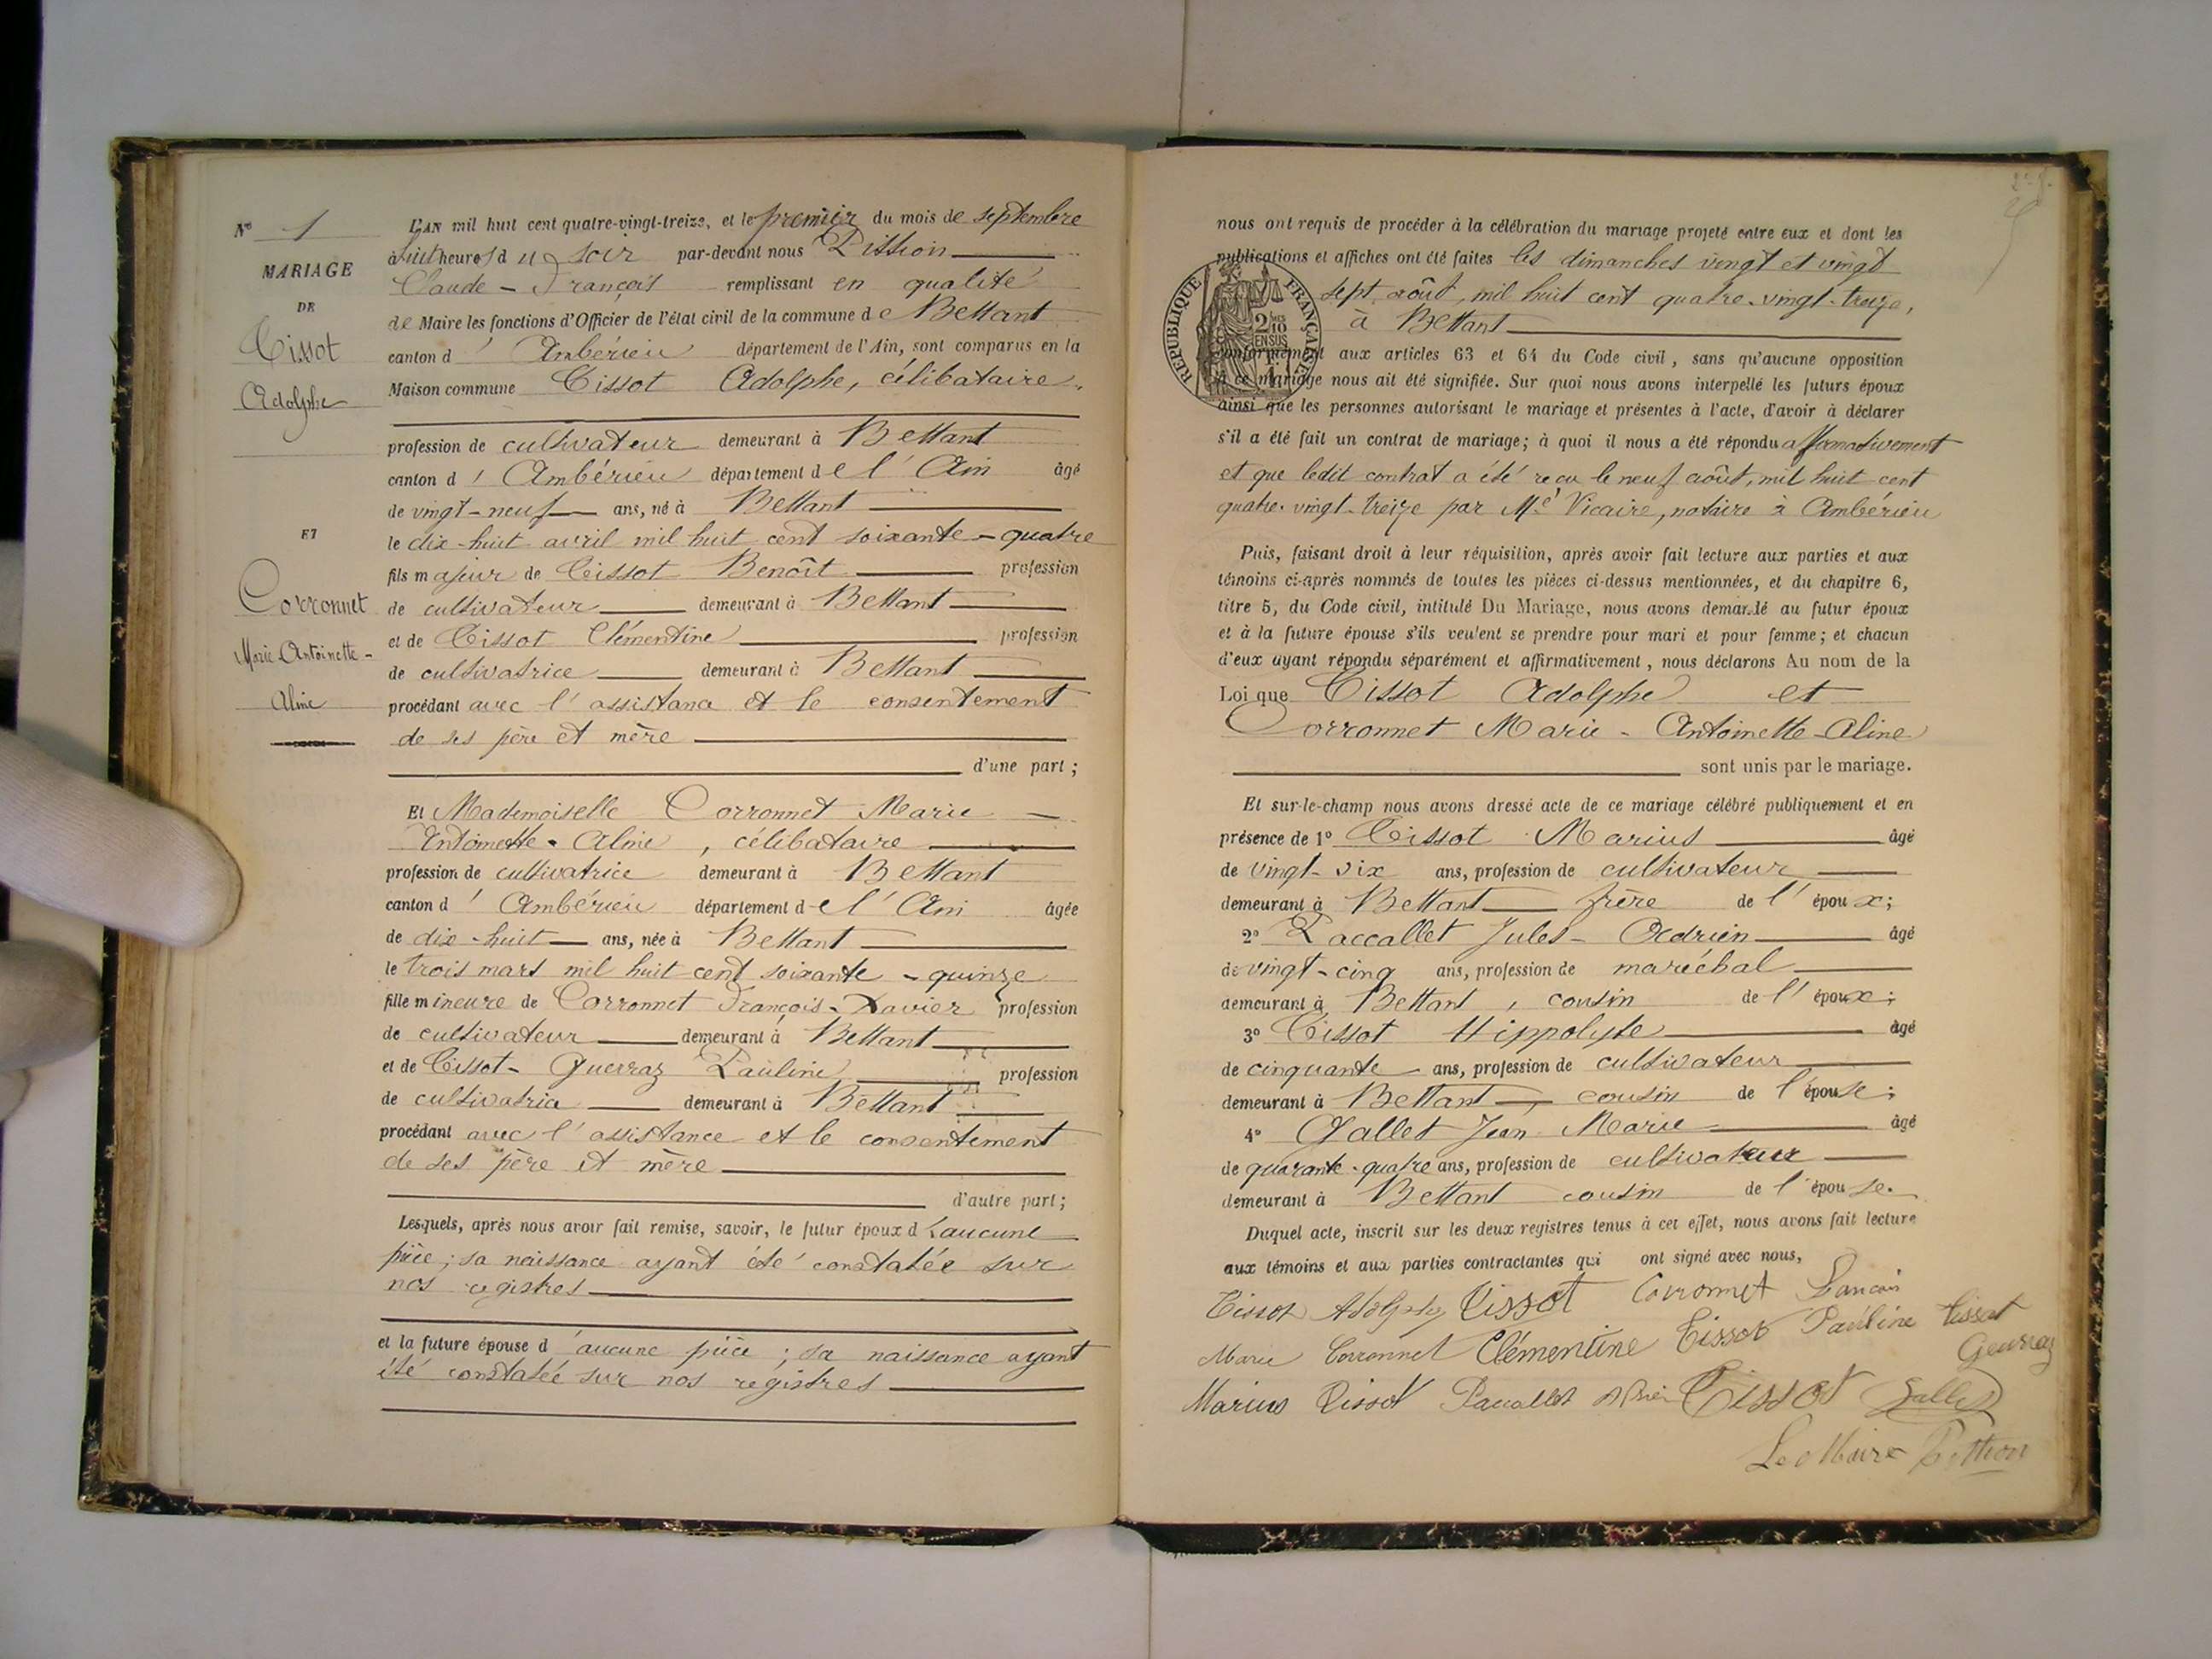 N° 1
MARIAGE
DE
Tissot
Adolphe
ET
Corronnet
Marie-Antoinette-
Aline
L'AN mil huit cent quatre-vingt-treize, et le premier du mois de septembre
à huit heures du soir par-devant nous Pittion
Claude-François remplissant en qualité
de Maire les fonctions d'Officier de l'état civil de la commune de Bettant
canton d'Ambérieu département de l'Ain, sont comparus en la
Maison commune Tissot Adolphe, célibataire,
profession de cultivateur demeurant à Bettant
canton d'Ambérieu département de l'Ain âgé
de vingt-neuf ans, né à Bettant
le dix-huit avril mil huit cent soixante-quatre
fils majeur de Tissot Benoît profession
de cultivateur demeurant à Bettant
et de Tissot Clémentine profession
de cultivatrice demeurant à Bettant
procédant avec l'assistance et le consentement
de ses père et mère
d'une part;
Et Mademoiselle Corronnet Marie
Antoinette-Aline, célibataire
profession de cultivatrice demeurant à Bettant
canton d'Ambérieu département de l'Ain âgée
de dix-huit ans, née à Bettant
le trois mars mil huit cent soixante-quinze
fille mineure de Corronnet François-Xavier profession
de cultivateur demeurant à Bettant
et de Tissot-Guerraz Pauline profession
de cultivatrice demeurant à Bettant
procédant avec l'assistance et le consentement
de ses père et mère
d'autre part;
Lesquels, après nous avoir fait remise, savoir, le futur époux d'aucune
pièce; sa naissance ayant été constatée sur
nos registres
et la future épouse d'aucune pièce; sa naissance ayant
été constatée sur nos registres
nous ont requis de procéder à la célébration du mariage projeté entre eux et dont les
publications et affiches ont été faites les dimanches vingt et vingt
sept août, mil huit cent quatre-vingt-treize,
à Bettant
RÉPUBLIQUE FRANÇAISE
2/10 EN SUS
conformément aux articles 63 et 64 du Code civil, sans qu'aucune opposition
à ce mariage nous ait été signifiée. Sur quoi nous avons interpellé les futurs époux
ainsi que les personnes autorisant le mariage et présentes à l'acte, d'avoir à déclarer
s'il a été fait un contrat de mariage; à quoi il nous a été répondu affirmativement
et que ledit contrat a été reçu le neuf août, mil huit cent
quatre-vingt-treize par Me Vicaire, notaire à Ambérieu
Puis, faisant droit à leur réquisition, après avoir fait lecture aux parties et aux
témoins ci-après nommés de toutes les pièces ci-dessus mentionnées, et du chapitre 6,
titre 5, du Code civil, intitulé Du Mariage, nous avons demandé au futur époux
et à la future épouse s'ils veulent se prendre pour mari et pour femme; et chacun
d'eux ayant répondu séparément et affirmativement, nous déclarons Au nom de la
Loi que Tissot Adolphe et
Corronnet Marie-Antoinette-Aline
sont unis par le mariage.
Et sur-le-champ nous avons dressé acte de ce mariage célébré publiquement et en
présence de 1° Tissot Marius âgé
de vingt-six ans, profession de cultivateur
demeurant à Bettant frère de l'époux;
2° Paccallet Jules-Adrien âgé
de vingt-cinq ans, profession de maréchal
demeurant à Bettant, cousin de l'époux;
3° Tissot Hippolyte âgé
de cinquante ans, profession de cultivateur
demeurant à Bettant, cousin de l'épouse;
4° Gallet Jean Marie âgé
de quarante-quatre ans, profession de cultivateur
demeurant à Bettant cousin de l'épouse.
Duquel acte, inscrit sur les deux registres tenus à cet effet, nous avons fait lecture
aux témoins et aux parties contractantes qui ont signé avec nous,
Tissot Adolphe Tissot Corronnet
Marie Corronnet Clémentine Tissot Pauline Tissot
Geurraz
Marius Tissot Paccallet Tissot Gallet
Le Maire Pittion